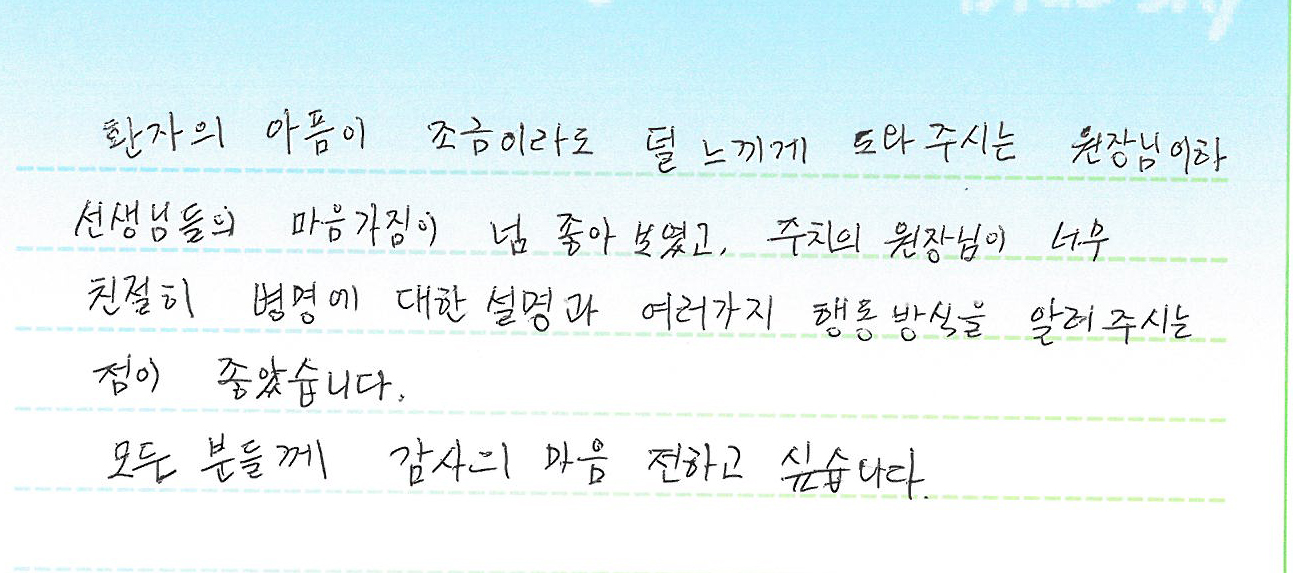 환자의 아픔이 조금이라도 덜 느끼게 도와 주시는 원장님이하
선생님들의 마음가짐이 넘 좋아 보였고, 주치의 원장님이 너무
친절히 병명에 대한 설명과 여러가지 행동 방식을 알려 주시는
점이 좋았습니다.
모든 분들께 감사의 마음 전하고 싶습니다.